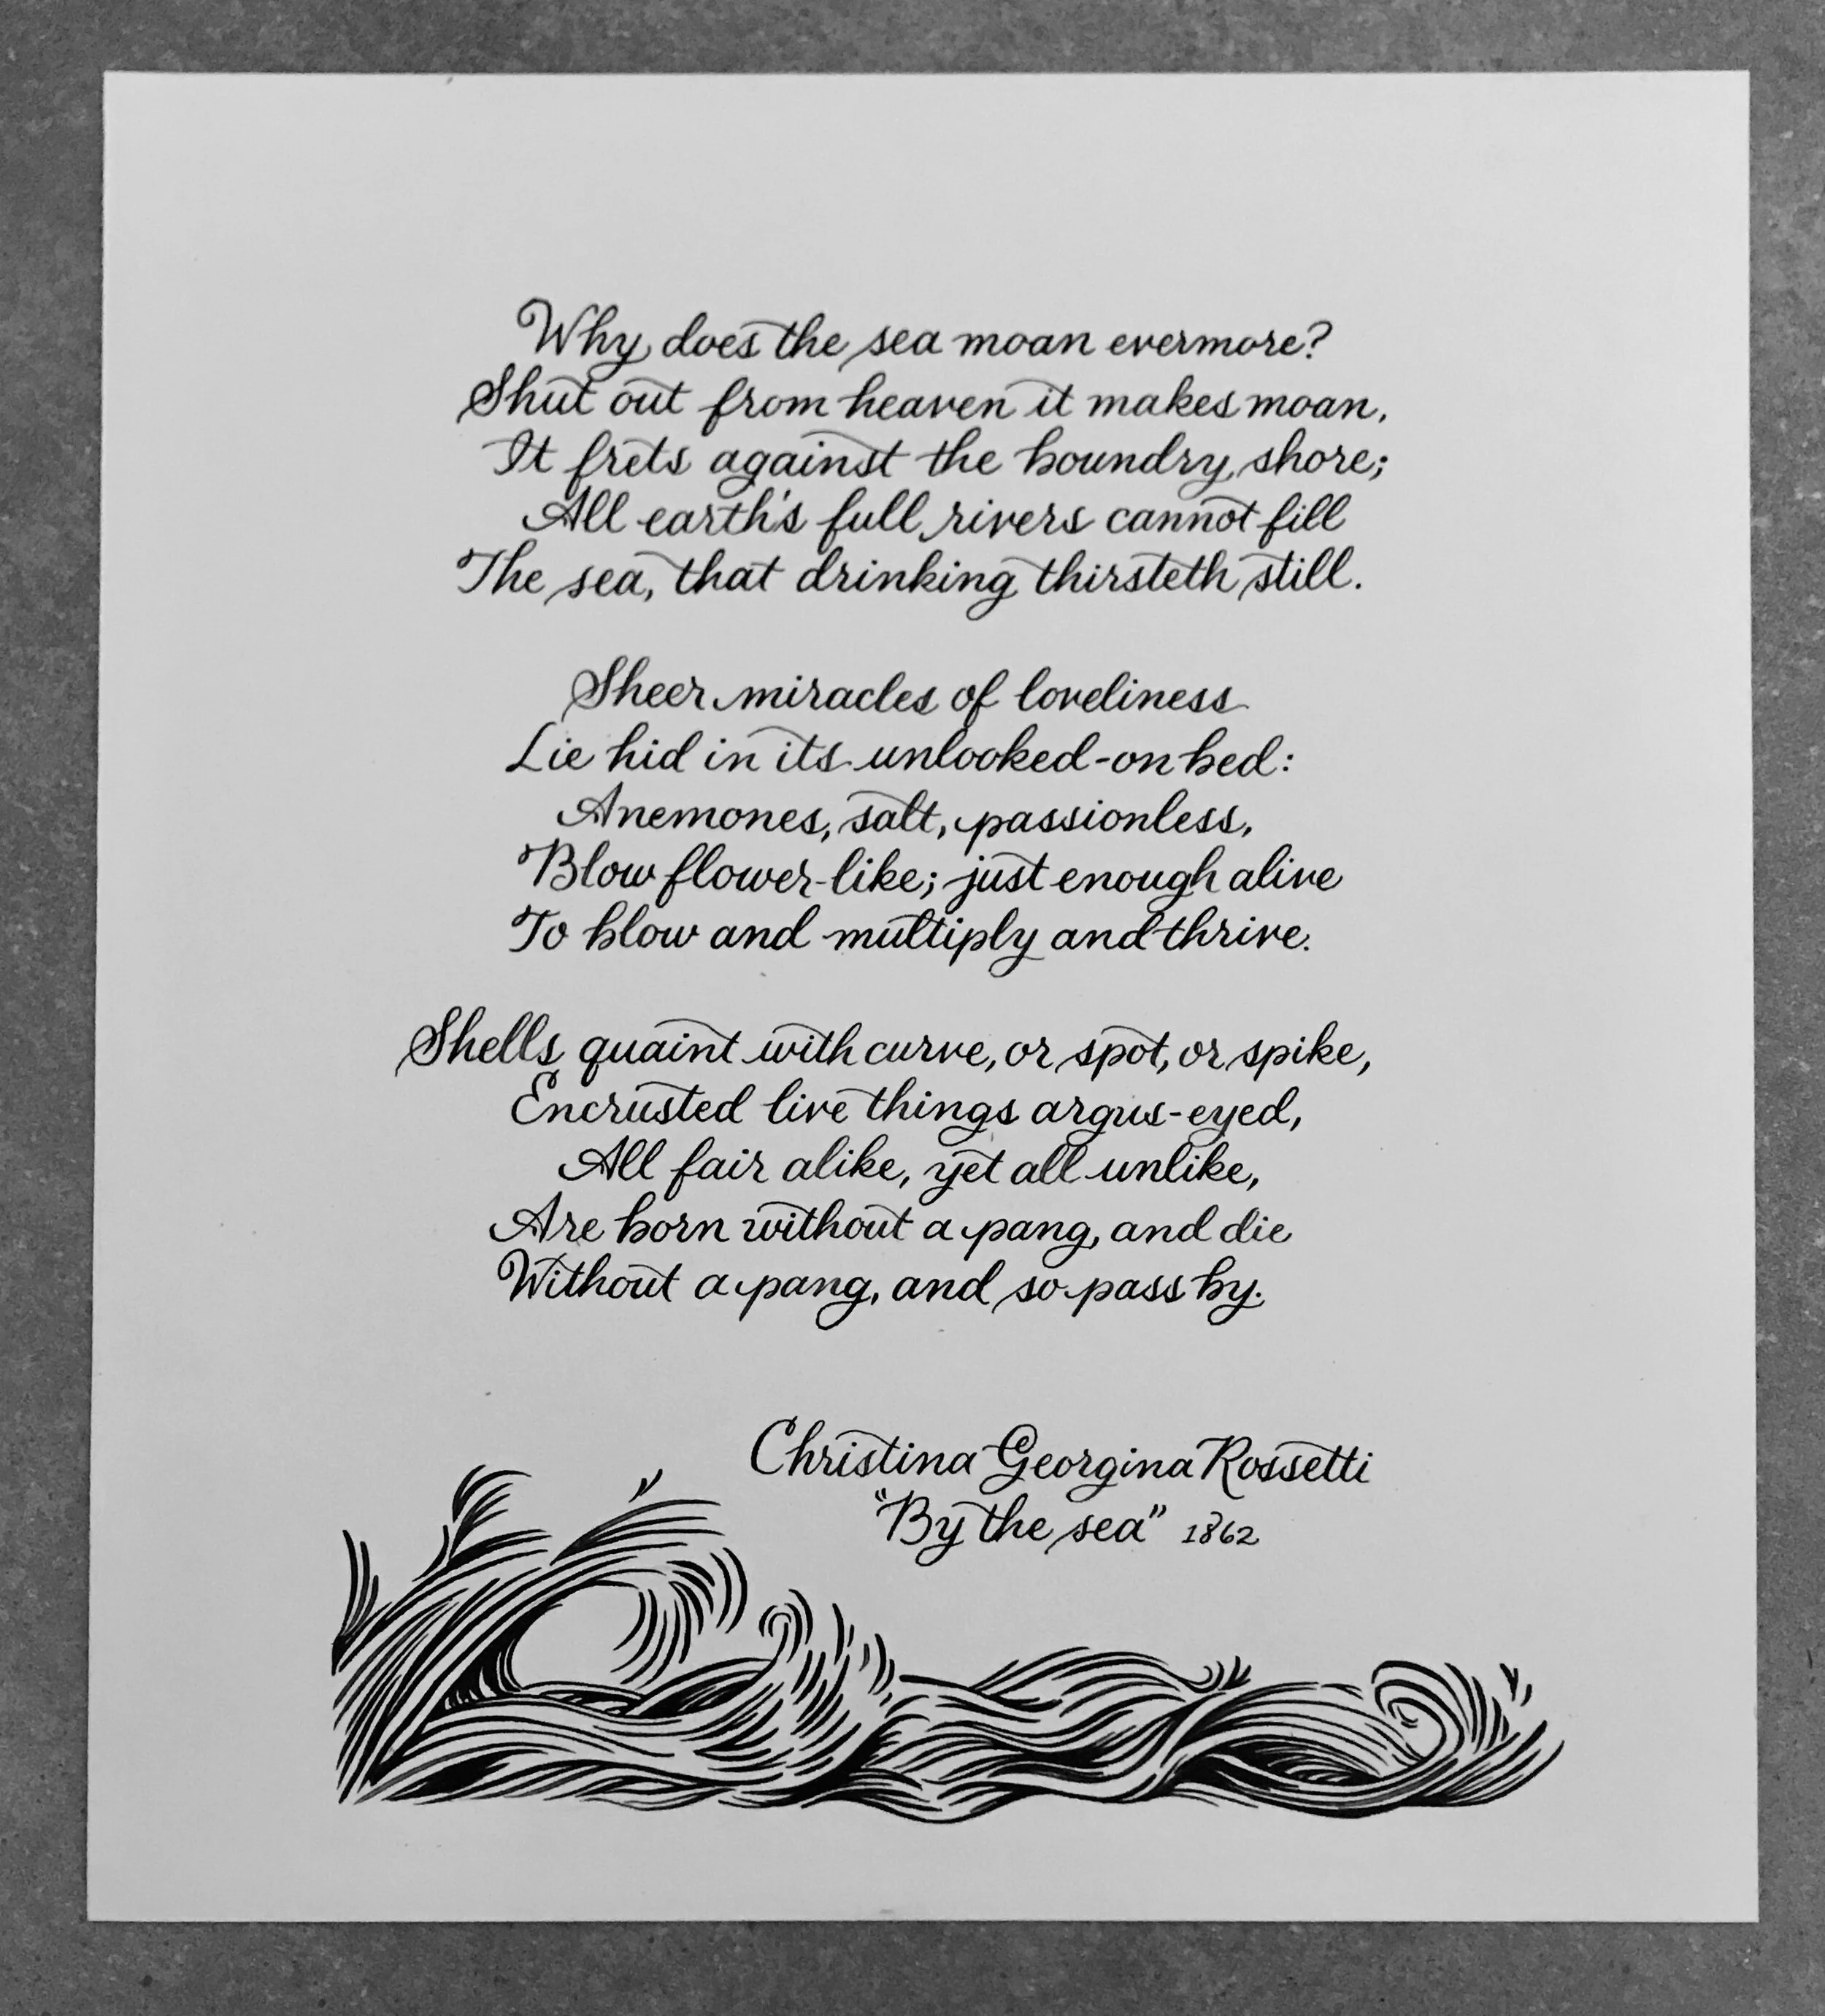 Why does the sea moan evermore?
Shut out from heaven it makes moan,
It frets against the boundry shore;
All earth's full rivers cannot fill
The sea, that drinking thirsteth still.
Sheer miracles of loveliness
Lie hid in its unlooked-on bed:
Anemones, salt, passionless,
Blow flower-like; just enough alive
To blow and multiply and thrive.
Shells quaint with curve, or spot, or spike,
Encrusted live things argus-eyed,
All fair alike, yet all unlike,
Are born without a pang, and die
Without a pang, and so pass by.
Christina Georgina Rossetti
"By the sea" 1862